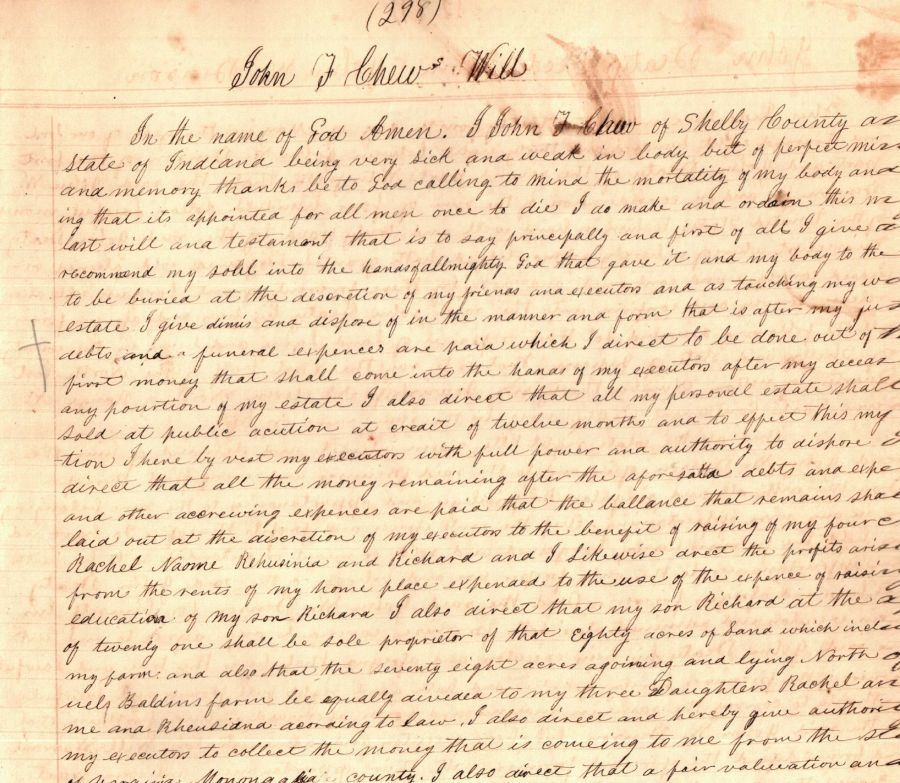 (298)
John F Chew's Will
In the name of God Amen. I John F Chew of Shelby County a
state of Indiana being very sick and weak in body but of perfect min
and memory thanks be to God calling to mind the mortatity of my body and
ing that its appointed for all men once to die I do make and ordain this m
last will and testament that is to say principally and first of all I give a
recommend my soul into the hands of allmighty God that gave it and my body to the
to be buried at the descretion of my friends and executors and as touching my wo
estate I give dimis and dispose of in the manner and form that is after my jus
debts and a funeral expences are paid which I direct to be done out of
first money that shall come into the hands of my executors after my deceas
any pourtion of my estate I also direct that all my personal estate shall
sold at public acution at credit of twelve months and to effect this my
tion I here by vest my executors with full power and authority to dispose
direct that all the money remaining after the aforesaid debts and expe
and other accrewing expences are paid that the ballance that remains sha
laid out at the discretion of my executors to the benefit of raising of my four c
Rachel Naome Rehusinia and Richard and I Likewise direct the profits aris
from the rents of my home place expended to the use of the expence of raisin
education of my son Richard I also direct that my son Richard at the a
of twenty one shall be sole proprietor of that Eighty acres of Land which inclu
my farm and also that the seventy eight acres agoining and lying North
usely Baldins farm be equally divided to my three Daughters Rachel
me and Rheusiana acording to Law. I also direct and hereby give authori
my executors to collect the money that is comeing to me from the st
of Virginia Monongalia county. I also direct that a fair valuation an